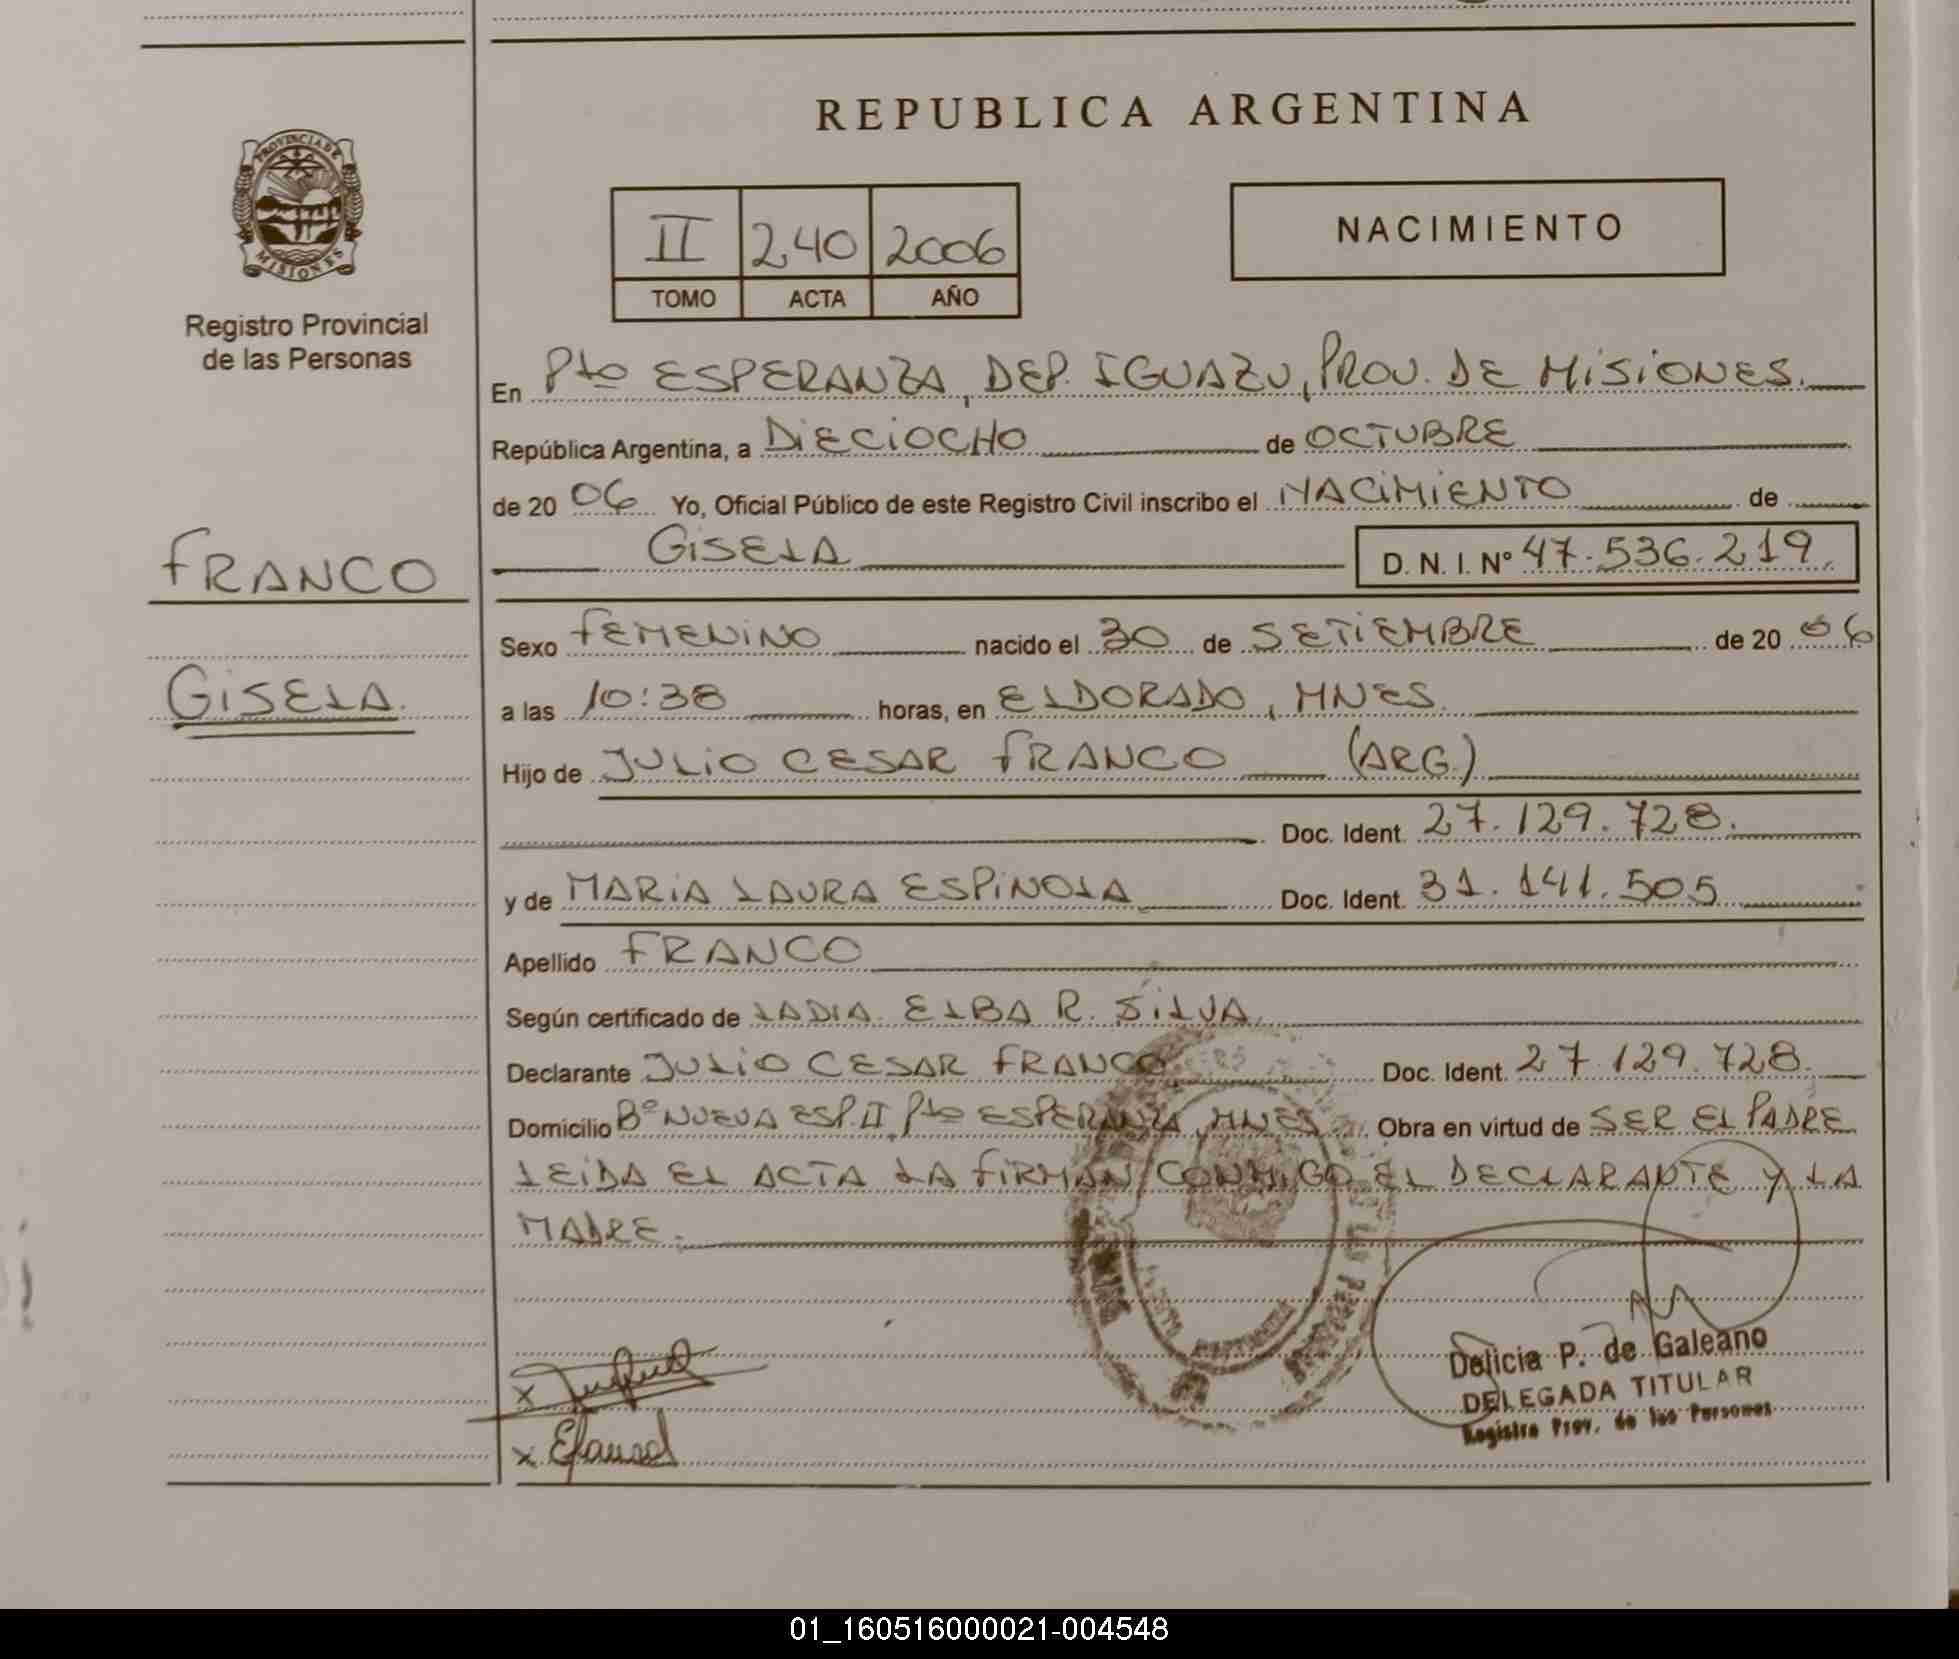 REPUBLICA ARGENTINA
PROVINCIA DE MISIONES
Registro Provincial
de las Personas
II 240 2006
TOMO ACTA AÑO
NACIMIENTO
En Pto ESPERANZA, DEP. IGUAZU, PROV. DE MISIONES.
República Argentina, a DIECIOCHO de OCTUBRE
de 2006 Yo, Oficial Público de este Registro Civil inscribo el NACIMIENTO de
GISELA D. N. I. Nº 47.536.219.
FRANCO
GISELA.
Sexo FEMENINO nacido el 30 de SETIEMBRE de 2006
a las 10:38 horas, en ELDORADO, MNES.
Hijo de JULIO CESAR FRANCO (ARG.)
Doc. Ident. 27.129.728.
y de MARIA LAURA ESPINOLA Doc. Ident. 31.141.505
Apellido FRANCO
Según certificado de LADIA. ELBA R. SILVA.
Declarante JULIO CESAR FRANCO Doc. Ident. 27.129.728.
Domicilio Bº NUEVA ESP. II, Pto ESPERANZA, MNES Obra en virtud de SER EL PADRE
LEIDA EL ACTA LA FIRMAN CONMIGO EL DECLARANTE Y LA
MADRE.
Delicia P. de Galeano
DELEGADA TITULAR
Registro Prov. de las Personas
x
x
01_160516000021-004548